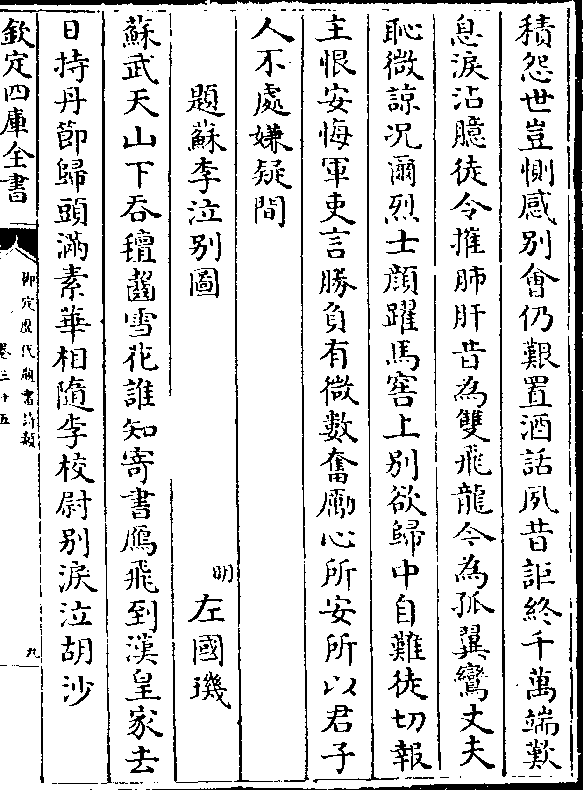 積怨世豈惻感别會仍艱置酒話夙昔詎終千萬端歎
息淚沾臆徒令摧肺肝昔為雙飛龍今為孤翼鸞丈夫
恥微諒况爾烈士顔躍馬窖上别欲歸中自難徒切報
主恨安悔軍吏言勝負有微數奮勵心所安所以君子
人不處嫌疑間
題蘇李泣别圖
明 左國璣
蘇武天山下吞氊齧雪花誰知寄書鴈飛到漢皇家去
日持丹節歸頭滿素華相隨李校尉别淚泣胡沙
欽定四庫全書
御定歴代題畫詩類
卷三十五
九